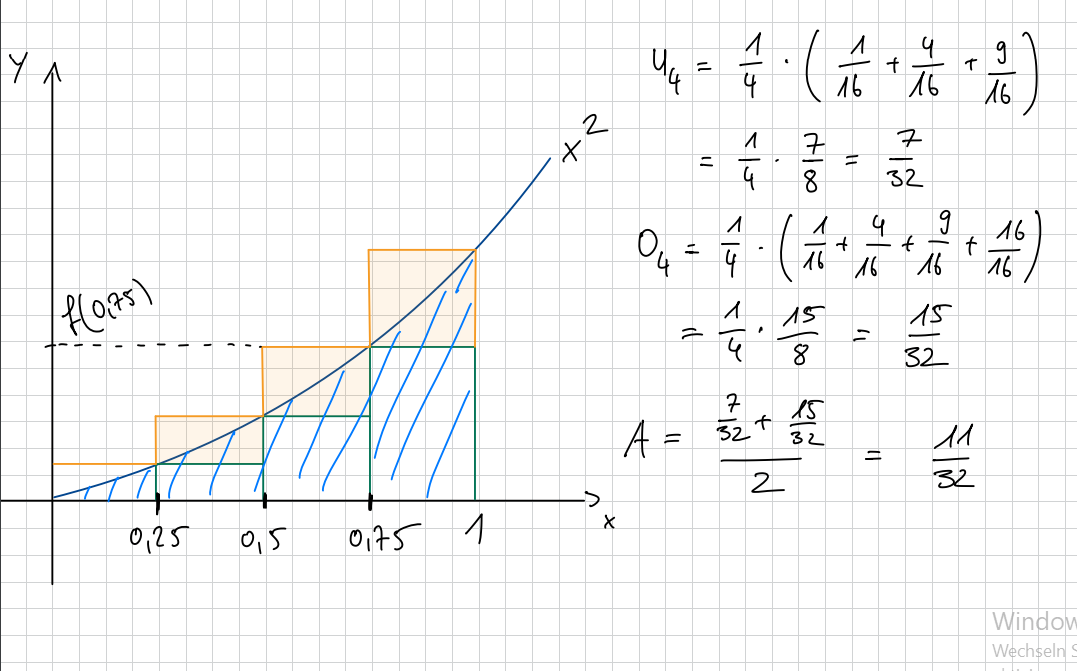 y
x²
f(0,75)
0,25 0,5 0,75 1
x
U₄ = 1/4 · (1/16 + 4/16 + 9/16)
= 1/4 · 7/8 = 7/32
O₄ = 1/4 · (1/16 + 4/16 + 9/16 + 16/16)
= 1/4 · 15/8 = 15/32
A = (7/32 + 15/32)/2 = 11/32
Window
Wechseln S